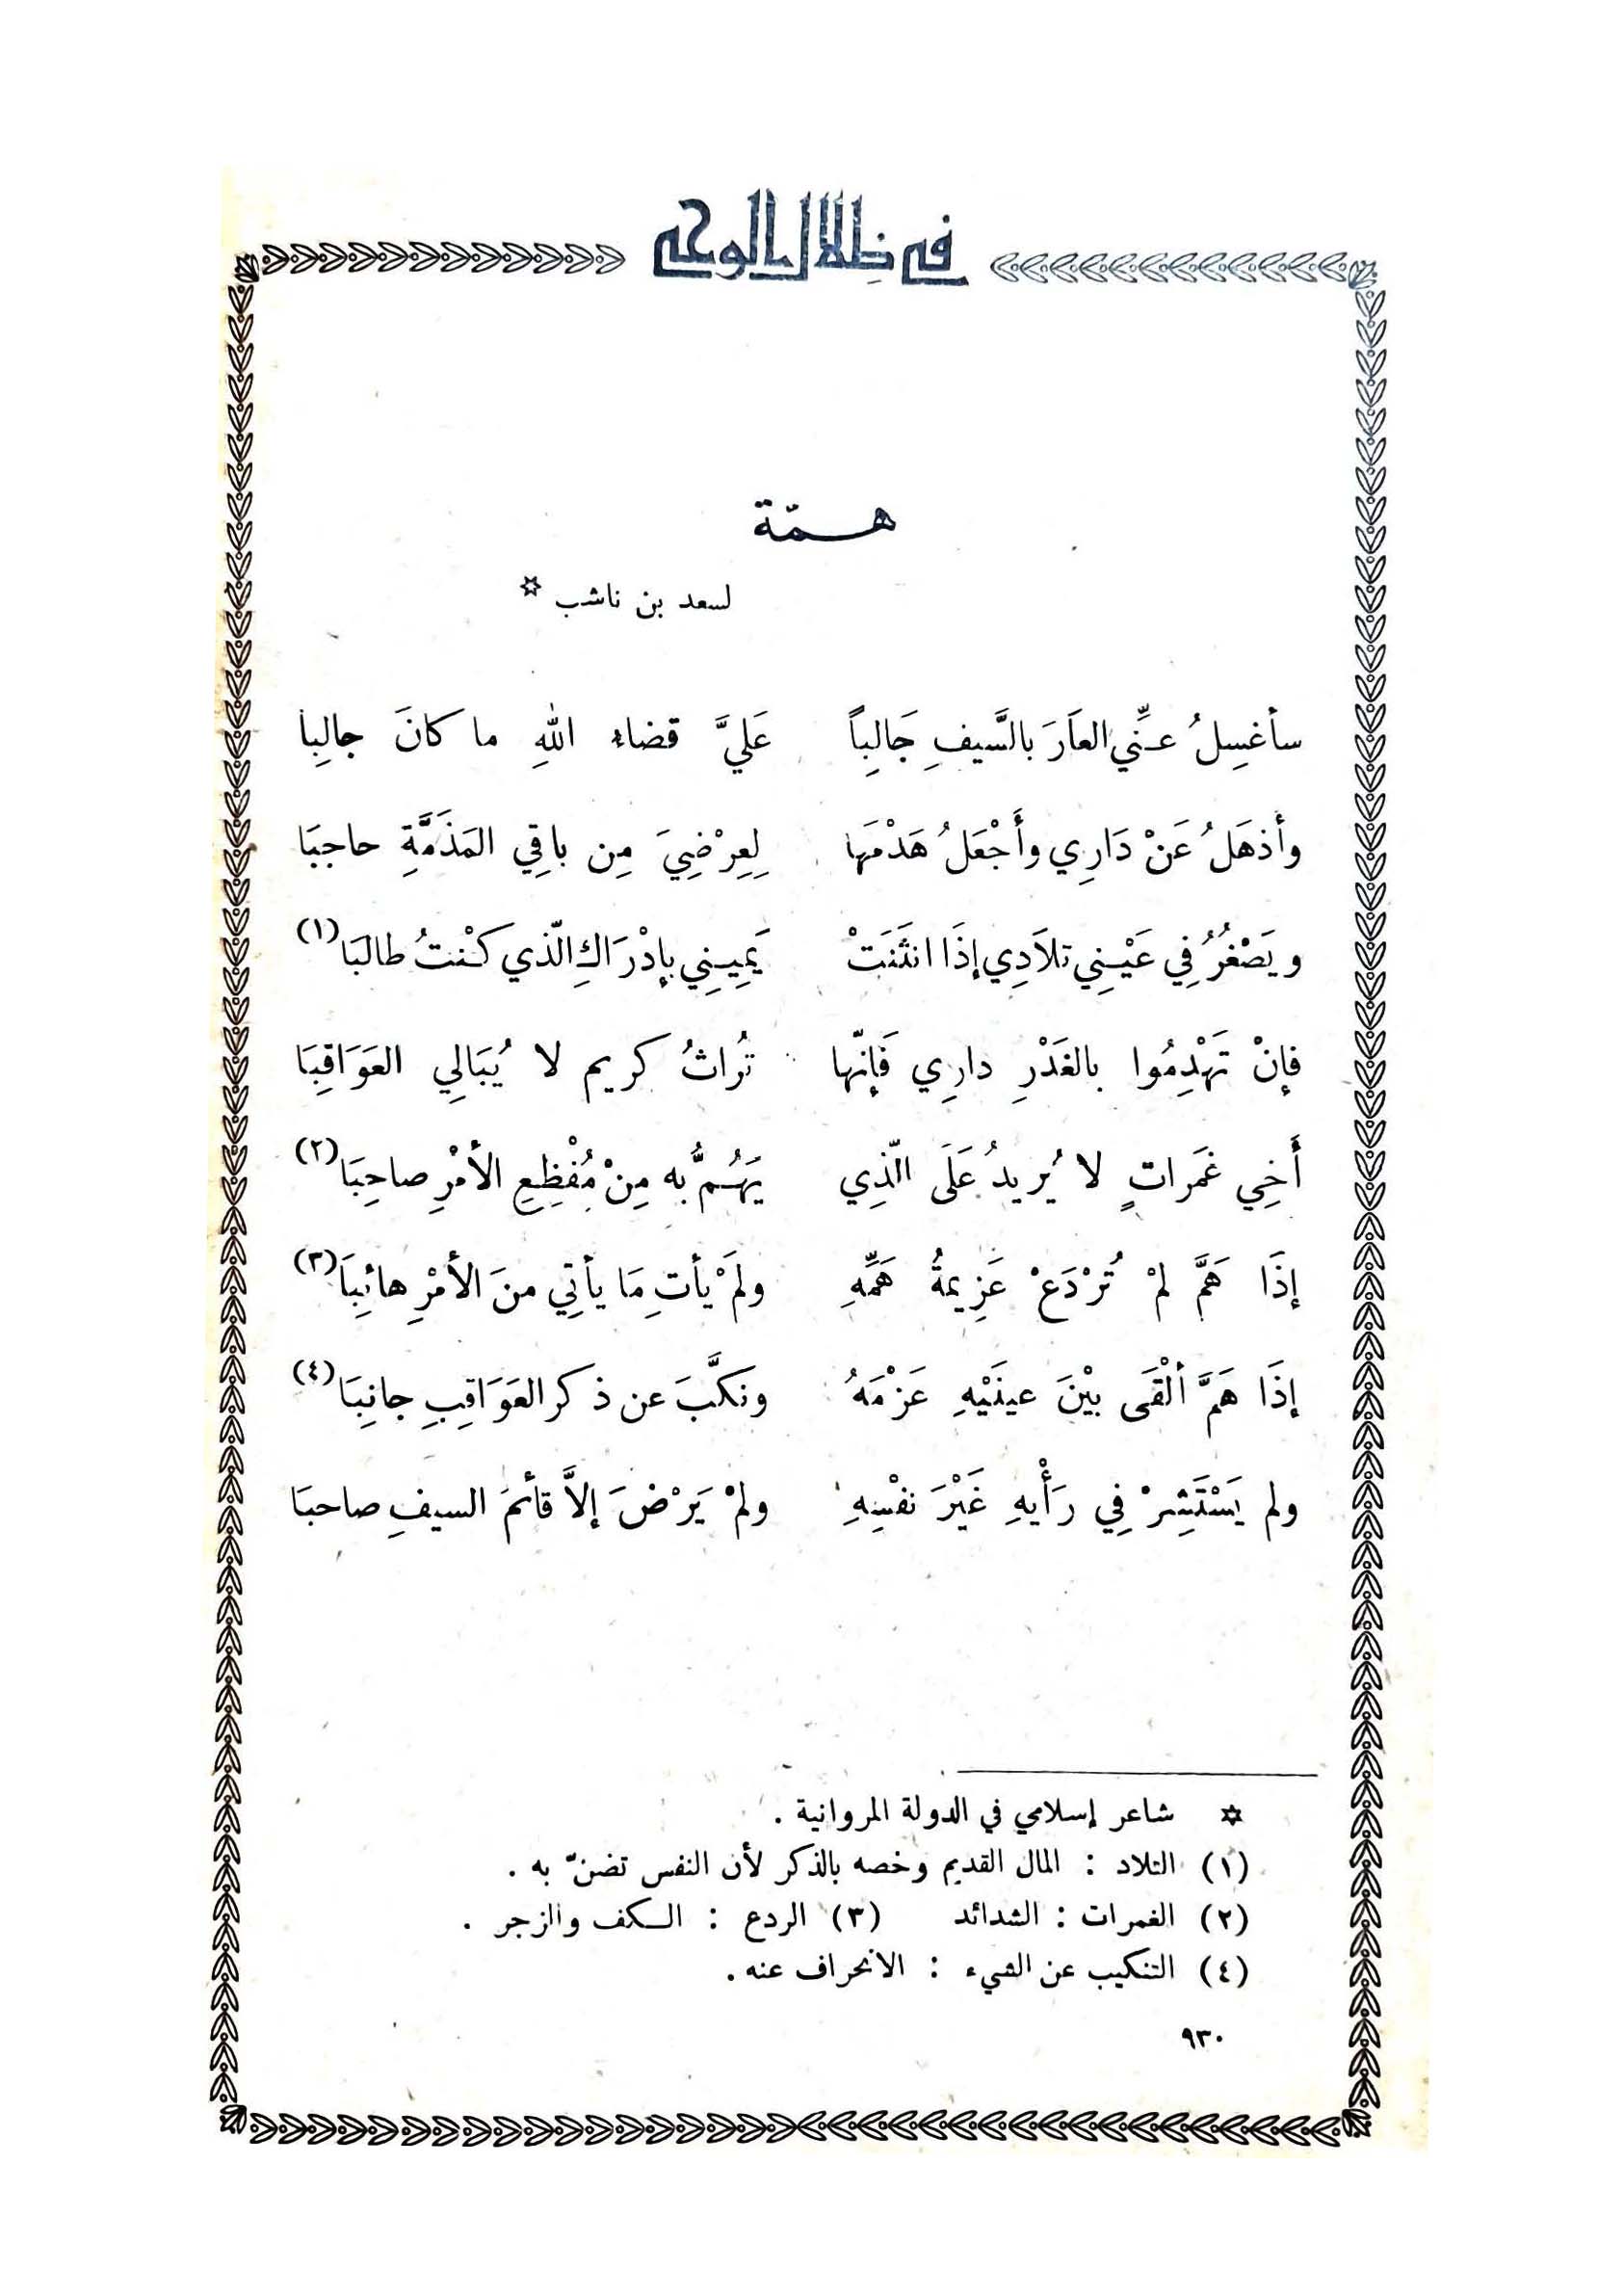 في ظلال الوحي
همّة
لسعد بن ناشب ✡
سأغسِلُ عنِّي العَارَ بالسَّيفِ جَالِباً عَليَّ قضاء اللهِ ما كانَ جالِبا
وأذهَلُ عَنْ دَارِي وأَجْعَلُ هَدْمَها لِعِرْضِيَ مِن باقِي المَذَمَّةِ حاجبَا
ويَصْغُرُ فِي عَيْنِي تلاَدِي إذَا انثَنَتْ يَمِينِي بإدْرَاكِ الّذي كنْتُ طالبَا (١)
فإنْ تَهْدِمُوا بالغَدْرِ دارِي فَإنّها تُراثُ كريم لا يُبَالِي العَوَاقِبَا
أَخِي غمَرات لا يُريدُ عَلَى الّذِي يَهُمُّ به مِنْ مُفْظِعِ الأمْرِ صاحِبَا (٢)
إذَا هَمَّ لمْ تُرْدَعْ عَزِيمةُ هَمِّهِ ولَمْ يأتِ مَا يأتِي منَ الأمْرِ هائبِاَ (٣)
إذَا هَمَّ ألْقَى بيْنَ عينَيْهِ عَزْمَهُ ونكَّبَ عن ذكر العَوَاقِبِ جانِبَا (٤)
ولم يَسْتَشِرْ فِي رَأْيهِ غَيْرَ نفْسِهِ ولمْ يَرْضَ إلاَّ قائمَ السيفِ صاحبَا
✡ شاعر إسلامي في الدولة المروانية .
(١) التلاد : المال القديم وخصه بالذكر لأن النفس تضنّ به .
(٢) الغمرات : الشدائد (٣) الردع : الكف والزجر .
(٤) التنكيب عن الشيء : الانحراف عنه .
٩٣٠